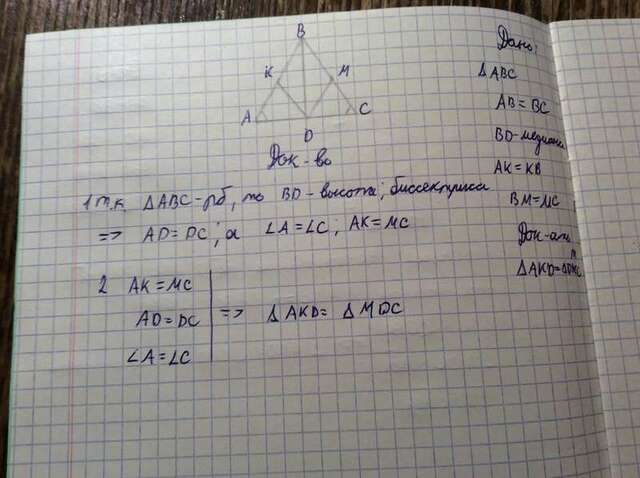 B
K
M
A
D
C
Док-во
1 т.к. ΔABC-рб, то BD-высота; биссектриса
=> AD=DC; а ∠A=∠C; AK=MC
2 AK=MC
AD=DC
∠A=∠C
=> ΔAKD= ΔMDC
Дано:
ΔABC
AB=BC
BD-медиана
AK=KB
BM=MC
Док-ать
ΔAKD=ΔDMC